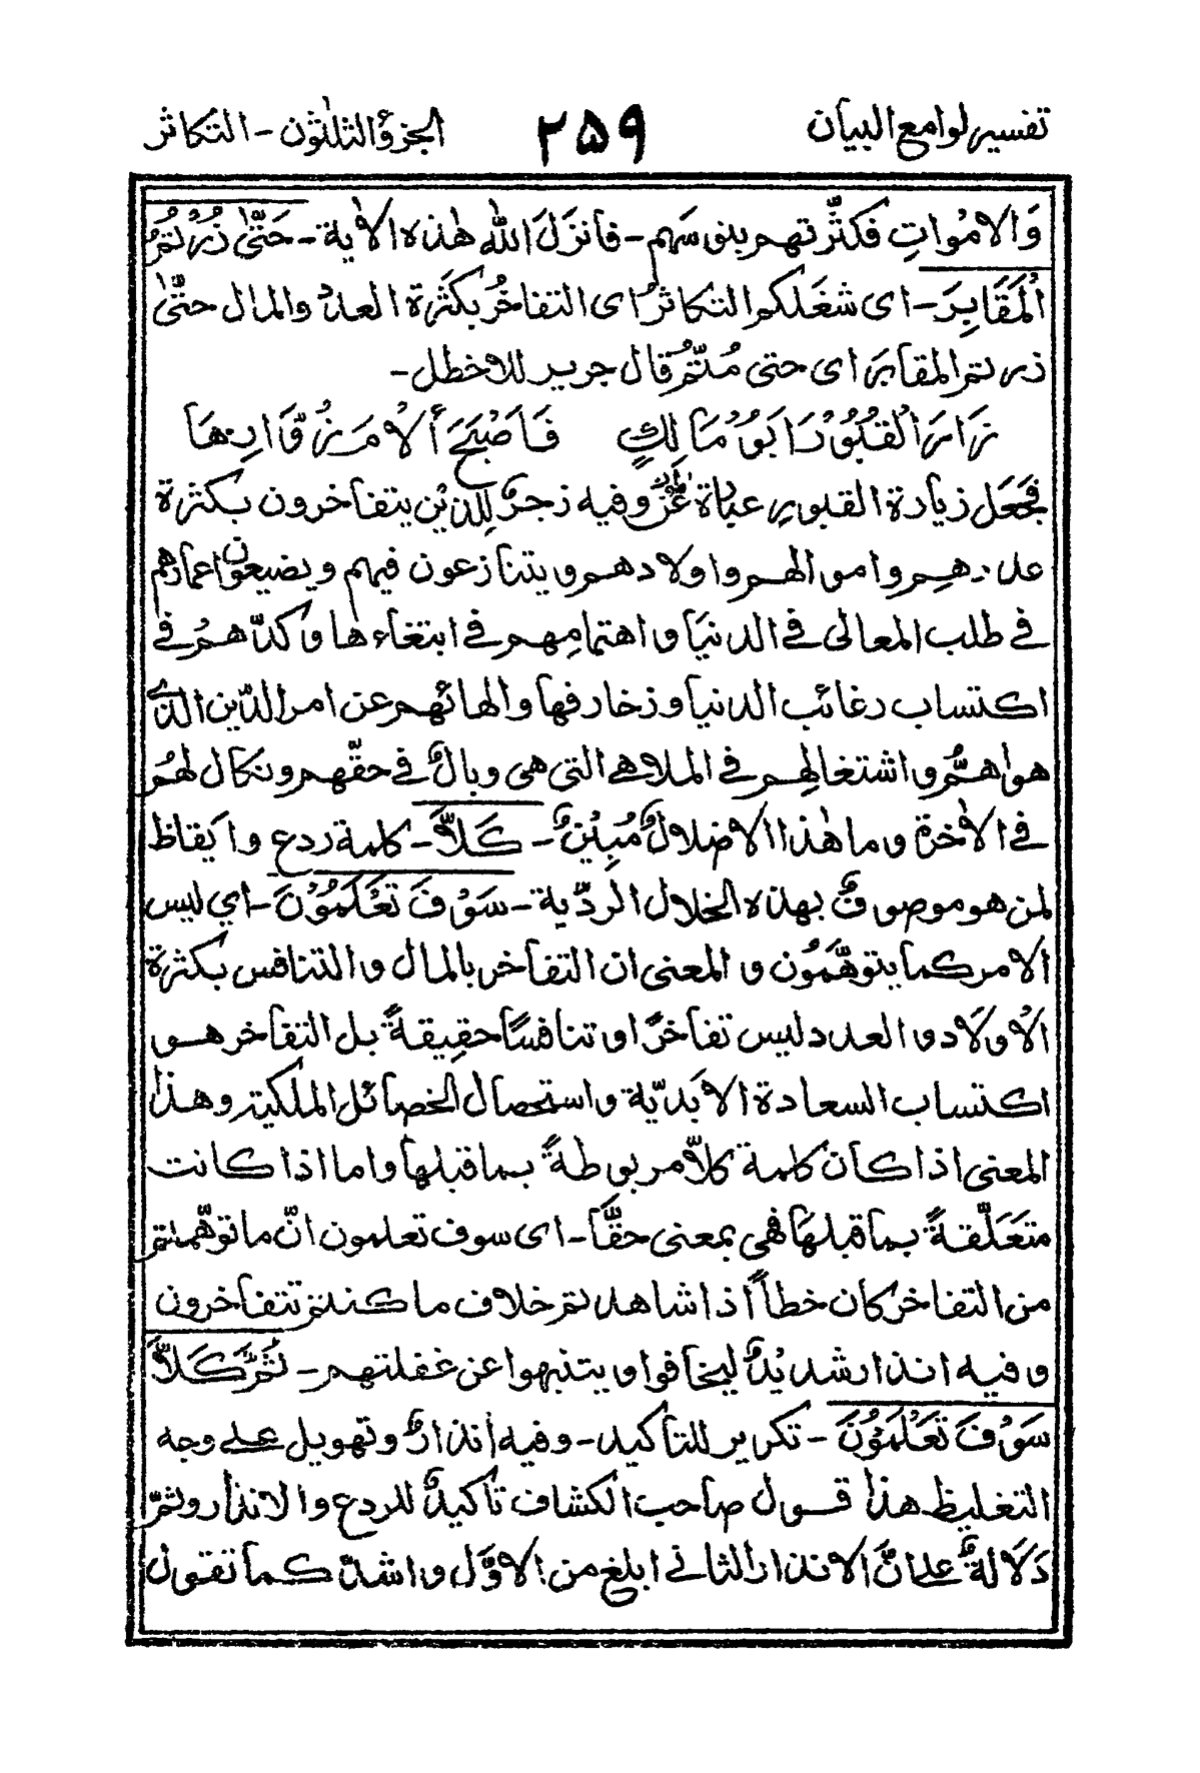 تفسير لوامع البيان ۲۵۹ الجزؤ الثلثون - التكاثر
وَالاَمْواتِ فكثّرتهم بنو سَهم - فانزَلَ اللّٰه هٰذه الاٰية - حَتّٰى زُرْتُمُ
الْمَقَابِرَ - اى شغَلكم التكاثرُ اى التفاخُرُ بكثَرة العدد والمال حتّىٰ
زرتم المقابرَ اى حتى مُتّمُ قال جرير للاخطل -
زَارَ الْقُبُوْرَ اَبُوْ مَالِكٍ فَاَصْبَحَ أَلْاَمَ زُوَّارِهَا
فجَعَل زيادة القبورِ عبارة عن وفيه زجرٌ لِلذيْن يتفاخرون بكثرة
عددهِم واموالهم واولادهم ويتنازعون فيهم ويضيعون اعمارهم
فى طلب المعالى فى الدنيَا و اهتمامِهم فى ابتغاءها و كدّهمُ فى
اكتساب رغائب الدنيا وزخارفها والهائهم عن امر الدّين الذى
هو اهمُّ و اشتغالِهم فى الملاهى التى هى وبالٌ فى حقّهم ونكال لهُم
فى الاٰخرة وما هٰذا الا ضلالٌ مُبِيْنٌ - كَلاَّ - كلمة ردع وايقاظ
لمن هو موصوفٌ بهذه الخلال الردّية - سَوْفَ تَعْلَمُوْنَ - اي ليس
الامر كما يتوهَّمُون و المعنى ان التفاخر بالمال و التنافس بكثرة
الاُولَاد و العدد ليس تفاخرًا او تنافسًا حقِيقةً بل التفاخر هو
اكتساب السعادة الاَبَديّة واستحصال الخصائل الملكيّة وهذا
المعنى اذا كان كلمة كلاّ مربوطةً بما قبلها واما اذا كانت
متعَلّقةً بما قبلهَا فهي بمعنى حقًّا - اى سوف تعلمون انّ ما توهّمتم
من التفاخر كان خطأً اذا شاهدتم خلاف ما كنتم تتفاخرون
و فيه انذار شديْدٌ ليخافوا و يتنبهوا عن غفلتهم - ثُمَّ كَلاَّ
سَوْفَ تَعْلَمُوْنَ - تكرير للتأكيد - وفيه انذارٌ وتهويل على وجه
التغليظ هذا قول صاحب الكشاف تأكيدٌ للردع والانذار وثمّ
دَلَالةٌ على انَّ الانذار الثانى ابلغ من الاوَّل و اشدّ كما تقول